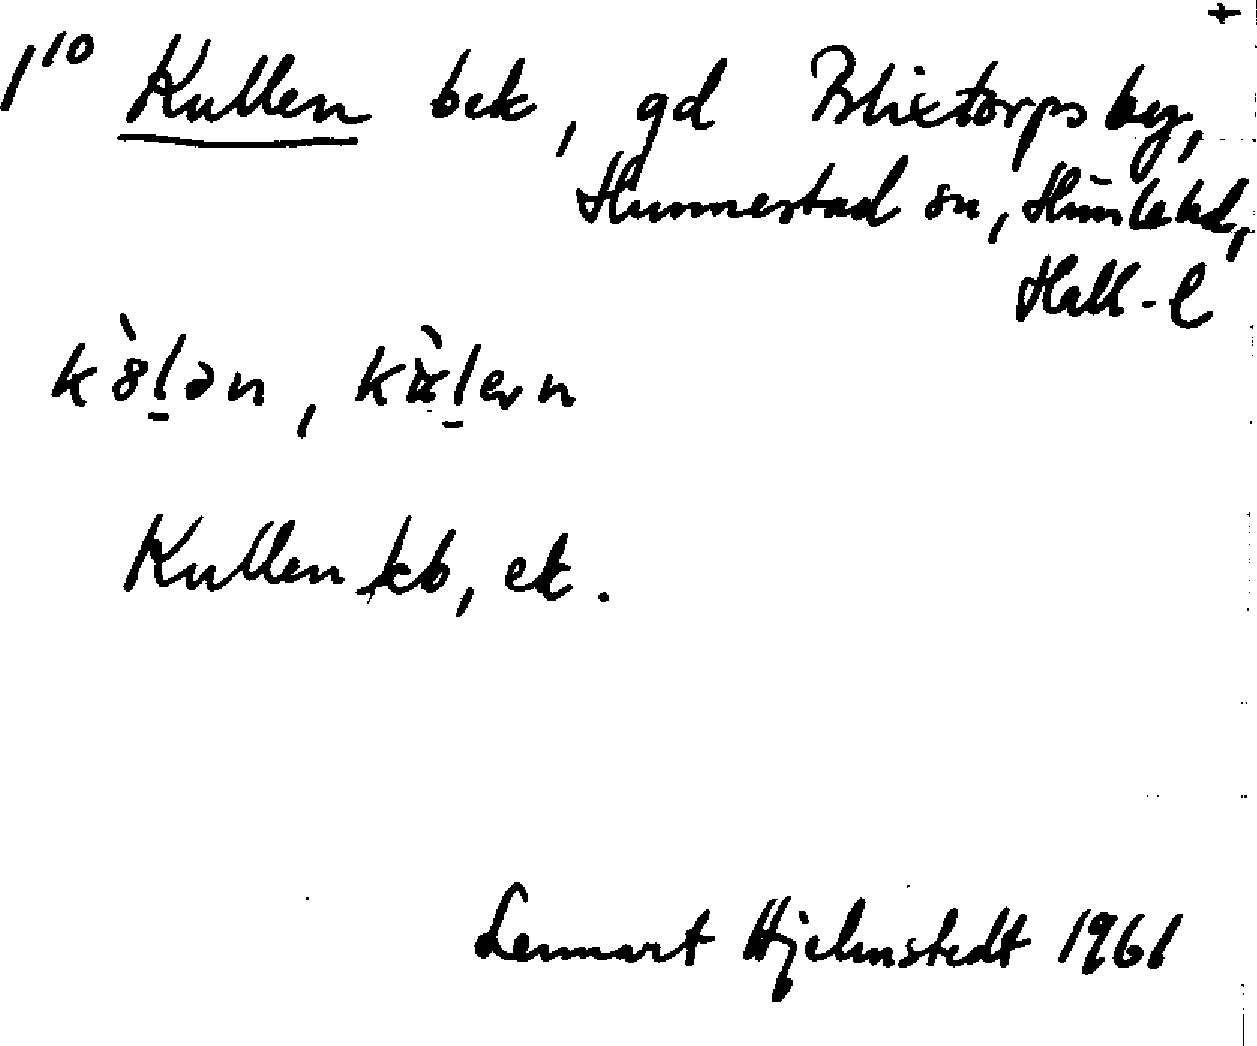 +
1¹⁰ Kullen bek, gd Blixtorps by,
Hunnestad sn, Himle hd,
Hall-l
Kullen kb, ek.
Lennart Hjelmstedt 1961